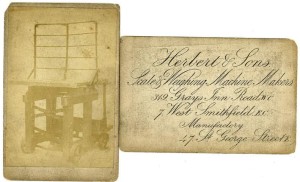 Herbert & Sons
Scale & Weighing Machine Makers
319 Grays Inn Road W.C.
7 West Smithfield E.C.
Manufactory
47 St. George Street E.